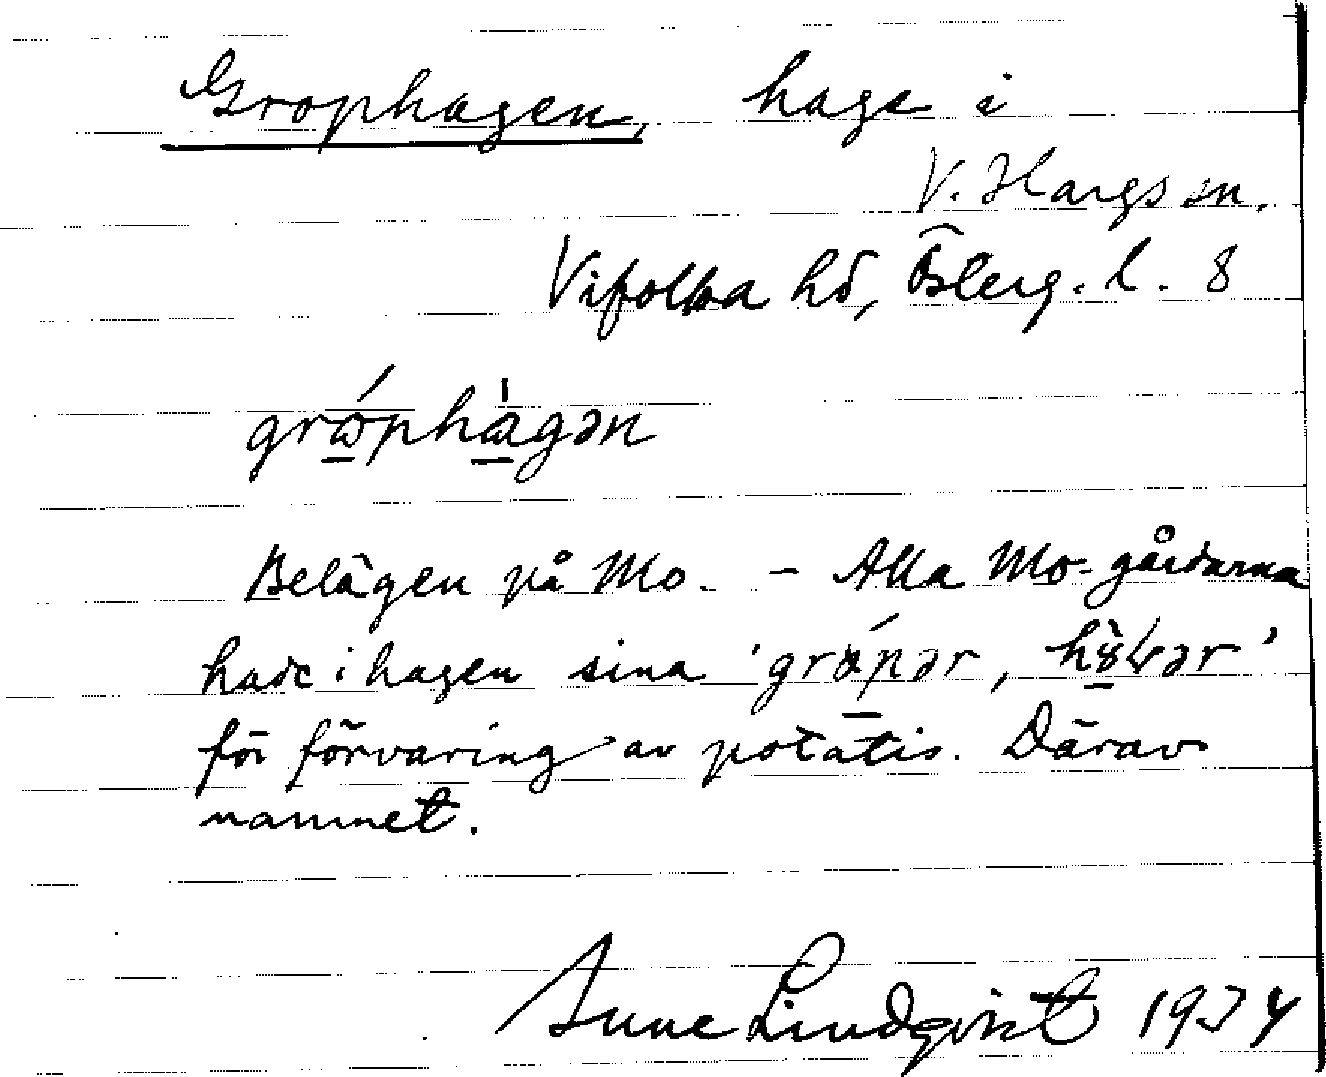 Grophagen, hage i
V. Hargs sn.
Vifolka hd, Österg. l. 8
grǿphàgən
Belägen på Mo. - Alla Mo-gårdarna
hade i hagen sina 'grópər,
för förvaring av potatis. Därav
namnet.
Sune Lindqvist 1934